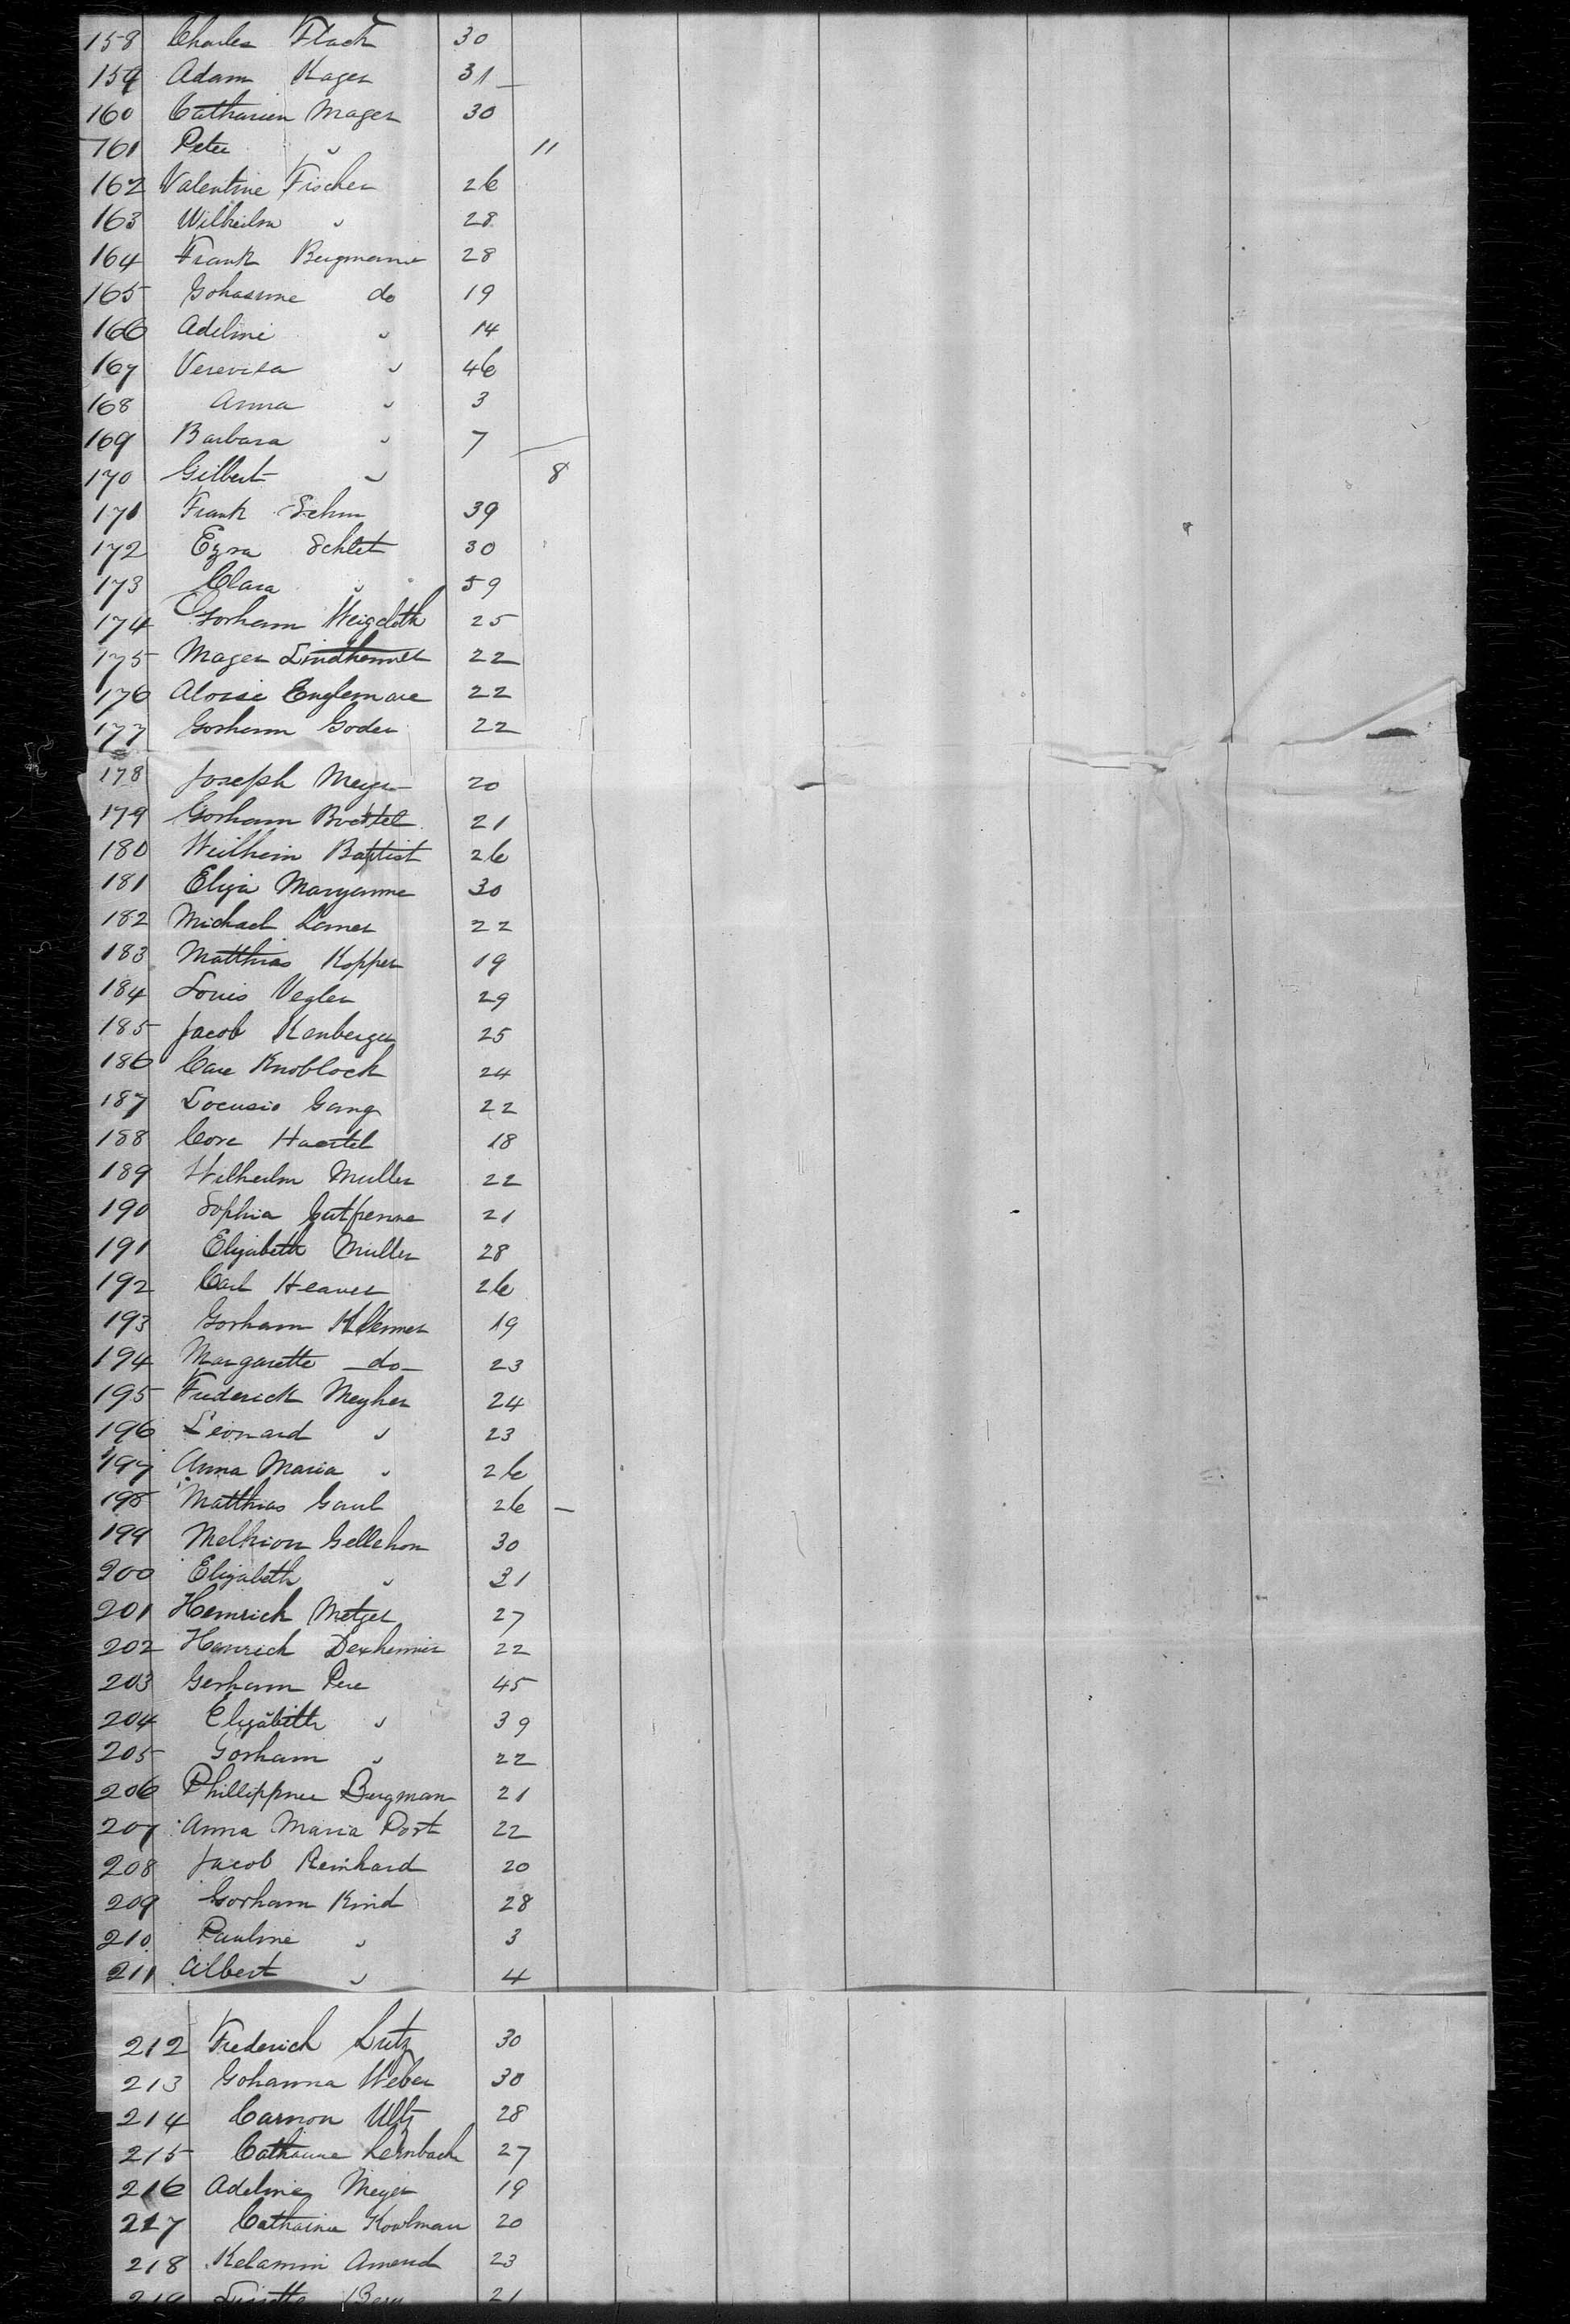 158 Charles Flack 30
159 Adam Kager 31
160 Catharien Mager 30
161 Peter " 11
162 Valentine Fischer 26
163 Wilheilm " 28
164 Frank Bergmann 28
165 Gohanne do 19
166 Adeline " 14
167 Verevisa " 46
168 Anna " 3
169 Barbara " 7
170 Gilbert " 8
171 Frank Sehm 39
172 Ezra Schlet 30
173 Clara " 59
174 Gorham Weigeloth 25
175 Mager Lindhemmer 22
176 Aloise Englemare 22
177 Gorham Goder 22
178 Joseph Meyer 20
179 Gorham Bocktel 21
180 Weilhein Baptist 26
181 Eliza Maryanne 30
182 Michael Lamer 22
183 Matthias Kopper 19
184 Louis Vegler 29
185 Jacob Kanberger 25
186 Care Knoblock 24
187 Locusio Gang 22
188 Core Haertel 18
189 Wilheilm Muller 22
190 Sophia 21
191 Elizabeth Muller 28
192 Carl Heaver 26
193 Gorham Klemmer 19
194 Margarette do 23
195 Frederick Meyher 24
196 Leonard " 23
197 Anna Maria " 26
198 Matthias Gaul 26
199 Melkion Gellehon 30
200 Elizabeth " 31
201 Hemrich Metzer 27
202 Henrich Dexhemier 22
203 Gerham Pere 45
204 Elizabeth " 39
205 Gorham " 22
206 Phillippnee Burgman 21
207 Anna Maria Post 22
208 Jacob Reinhard 20
209 Gorham Kind 28
210 Pauline " 3
211 Albert " 4
212 Frederich Lutz 30
213 Gohanna Weber 30
214 Carnon Ultz 28
215 Catharine Lernbach 27
216 Adeline Meyer 19
217 Catharine Kowlman 20
218 Kelamin Amend 23
219 21